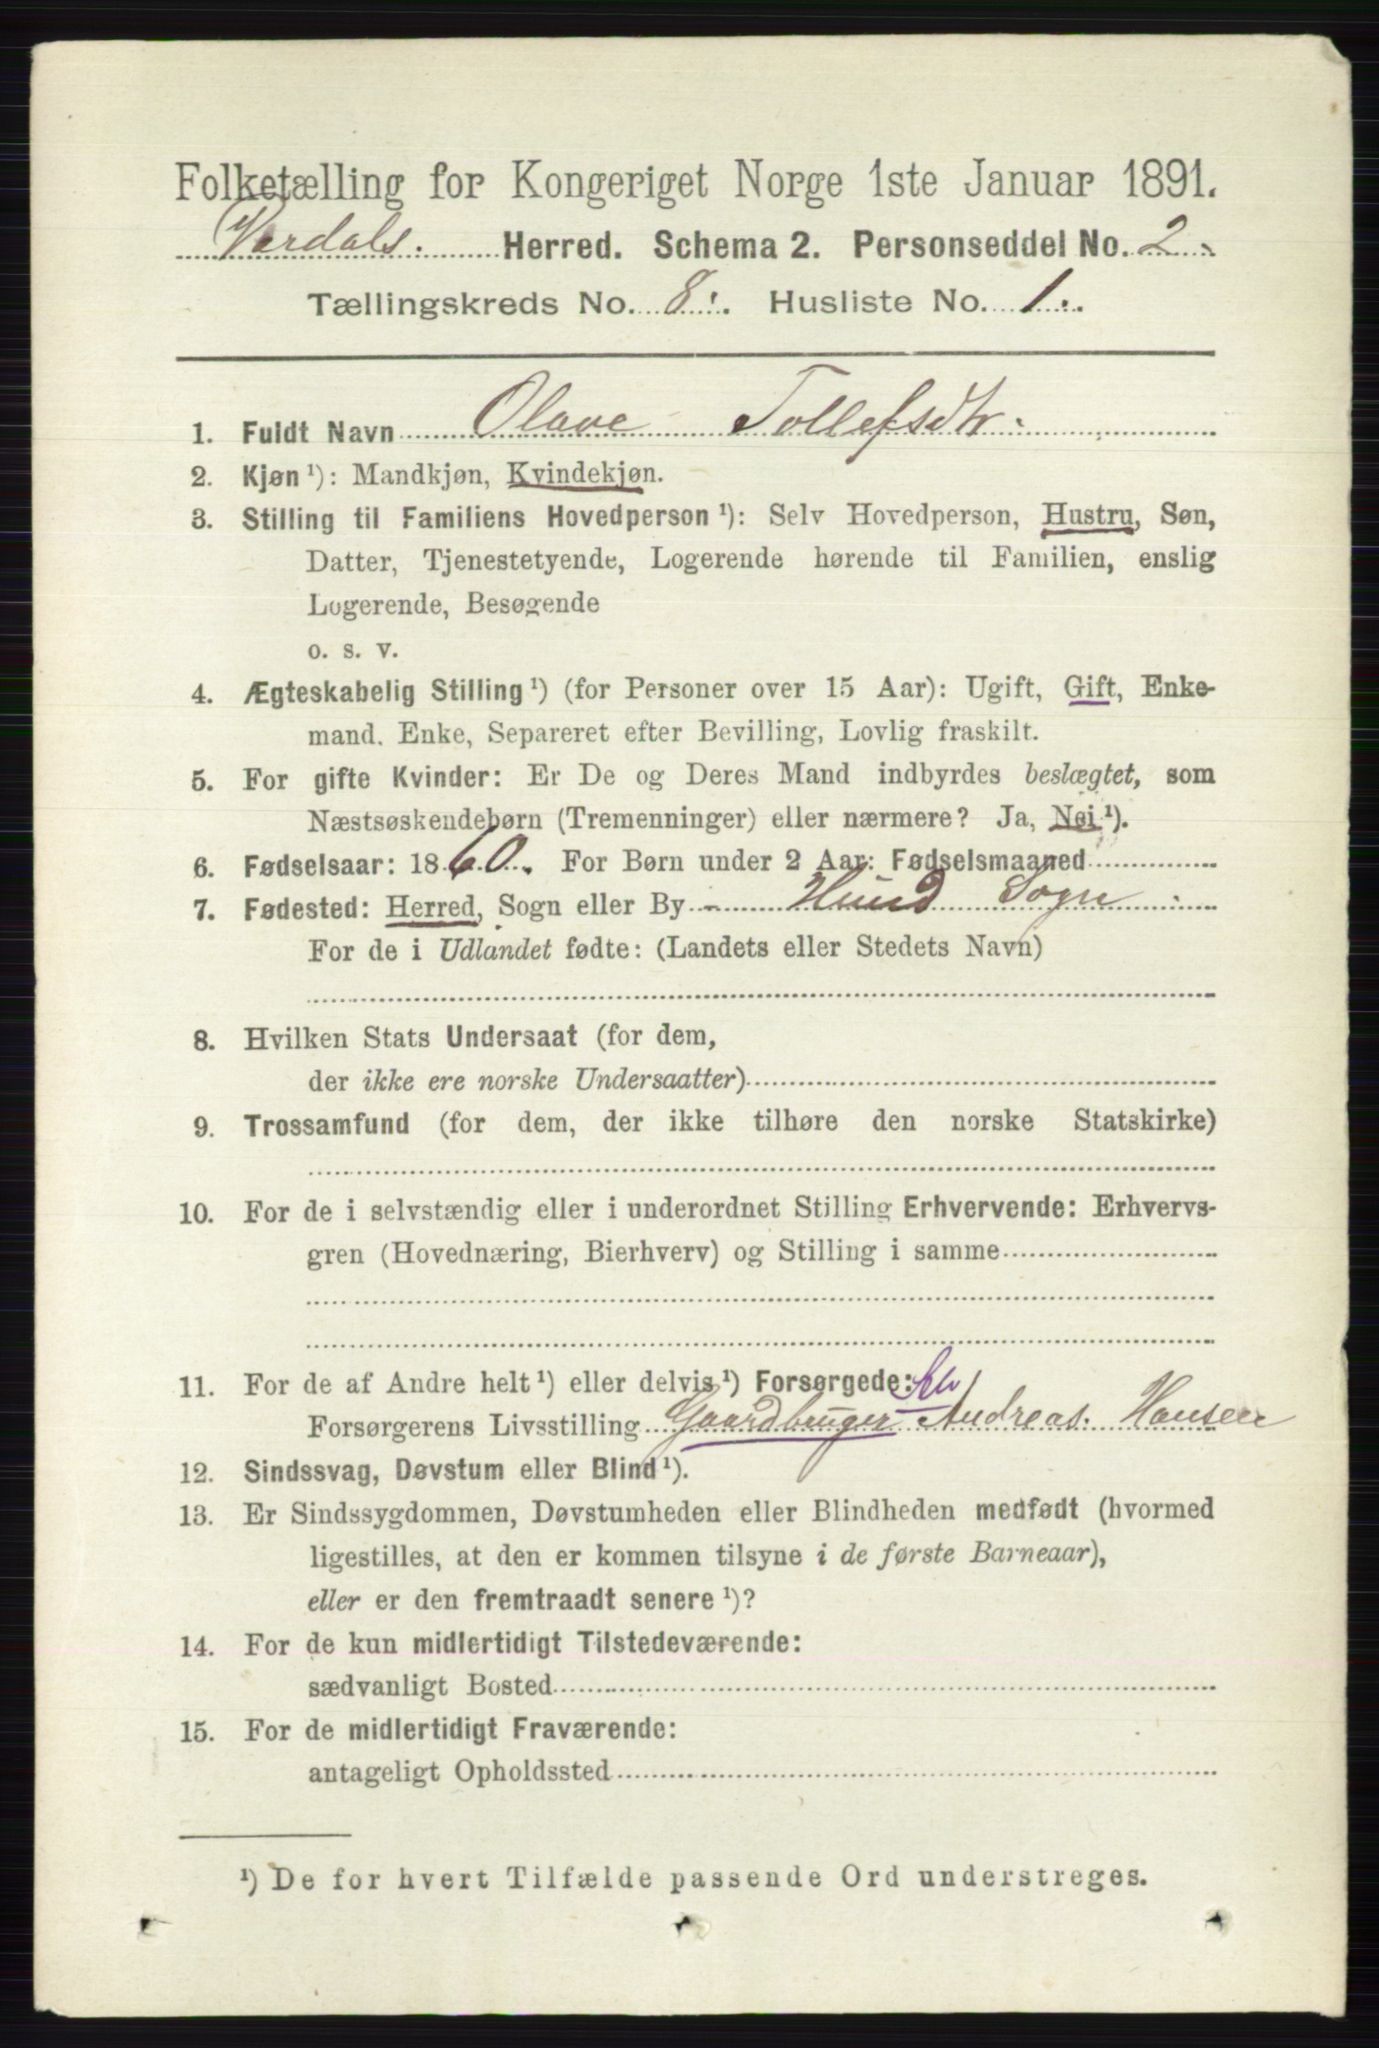 Folketælling for Kongeriget Norge 1ste Januar 1891.
Vardals. Herred. Schema 2. Personseddel No. 2
Tællingskreds No. 8. Husliste No. 1.
1. Fuldt Navn Olave Tollefsdtr.
2. Kjøn ¹): Mandkjøn, Kvindekjøn.
3. Stilling til Familiens Hovedperson ¹): Selv Hovedperson, Hustru, Søn,
Datter, Tjenestetyende, Logerende hørende til Familien, enslig
Logerende, Besøgende
o. s. v.
4. Ægteskabelig Stilling ¹) (for Personer over 15 Aar): Ugift, Gift, Enke-
mand. Enke, Separeret efter Bevilling, Lovlig fraskilt.
5. For gifte Kvinder: Er De og Deres Mand indbyrdes beslægtet, som
Næstsøskendebørn (Tremenninger) eller nærmere? Ja, Nei ¹).
6. Fødselsaar: 1860. For Børn under 2 Aar: Fødselsmaaned
7. Fødested: Herred, Sogn eller By - Hund Sogn
For de i Udlandet fødte: (Landets eller Stedets Navn)
8. Hvilken Stats Undersaat (for dem,
der ikke ere norske Undersaatter)
9. Trossamfund (for dem, der ikke tilhøre den norske Statskirke)
10. For de i selvstændig eller i underordnet Stilling Erhvervende: Erhvervs-
gren (Hovednæring, Bierhverv) og Stilling i samme
11. For de af Andre helt ¹) eller delvis ¹) Forsørgede:
Forsørgerens Livsstilling Gaardbruger Andreas. Hansen
12. Sindssvag, Døvstum eller Blind ¹).
13. Er Sindssygdommen, Døvstumheden eller Blindheden medfødt (hvormed
ligestilles, at den er kommen tilsyne i de første Barneaar),
eller er den fremtraadt senere ¹)?
14. For de kun midlertidigt Tilstedeværende:
sædvanligt Bosted
15. For de midlertidigt Fraværende:
antageligt Opholdssted
¹) De for hvert Tilfælde passende Ord understreges.